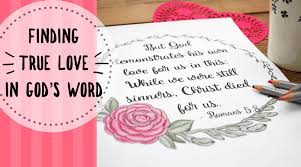 FINDING
TRUE LOVE
IN GOD'S WORD
But God
demonstrates his own
love for us in this:
While we were still
sinners, Christ died
for us.
Romans 5:8